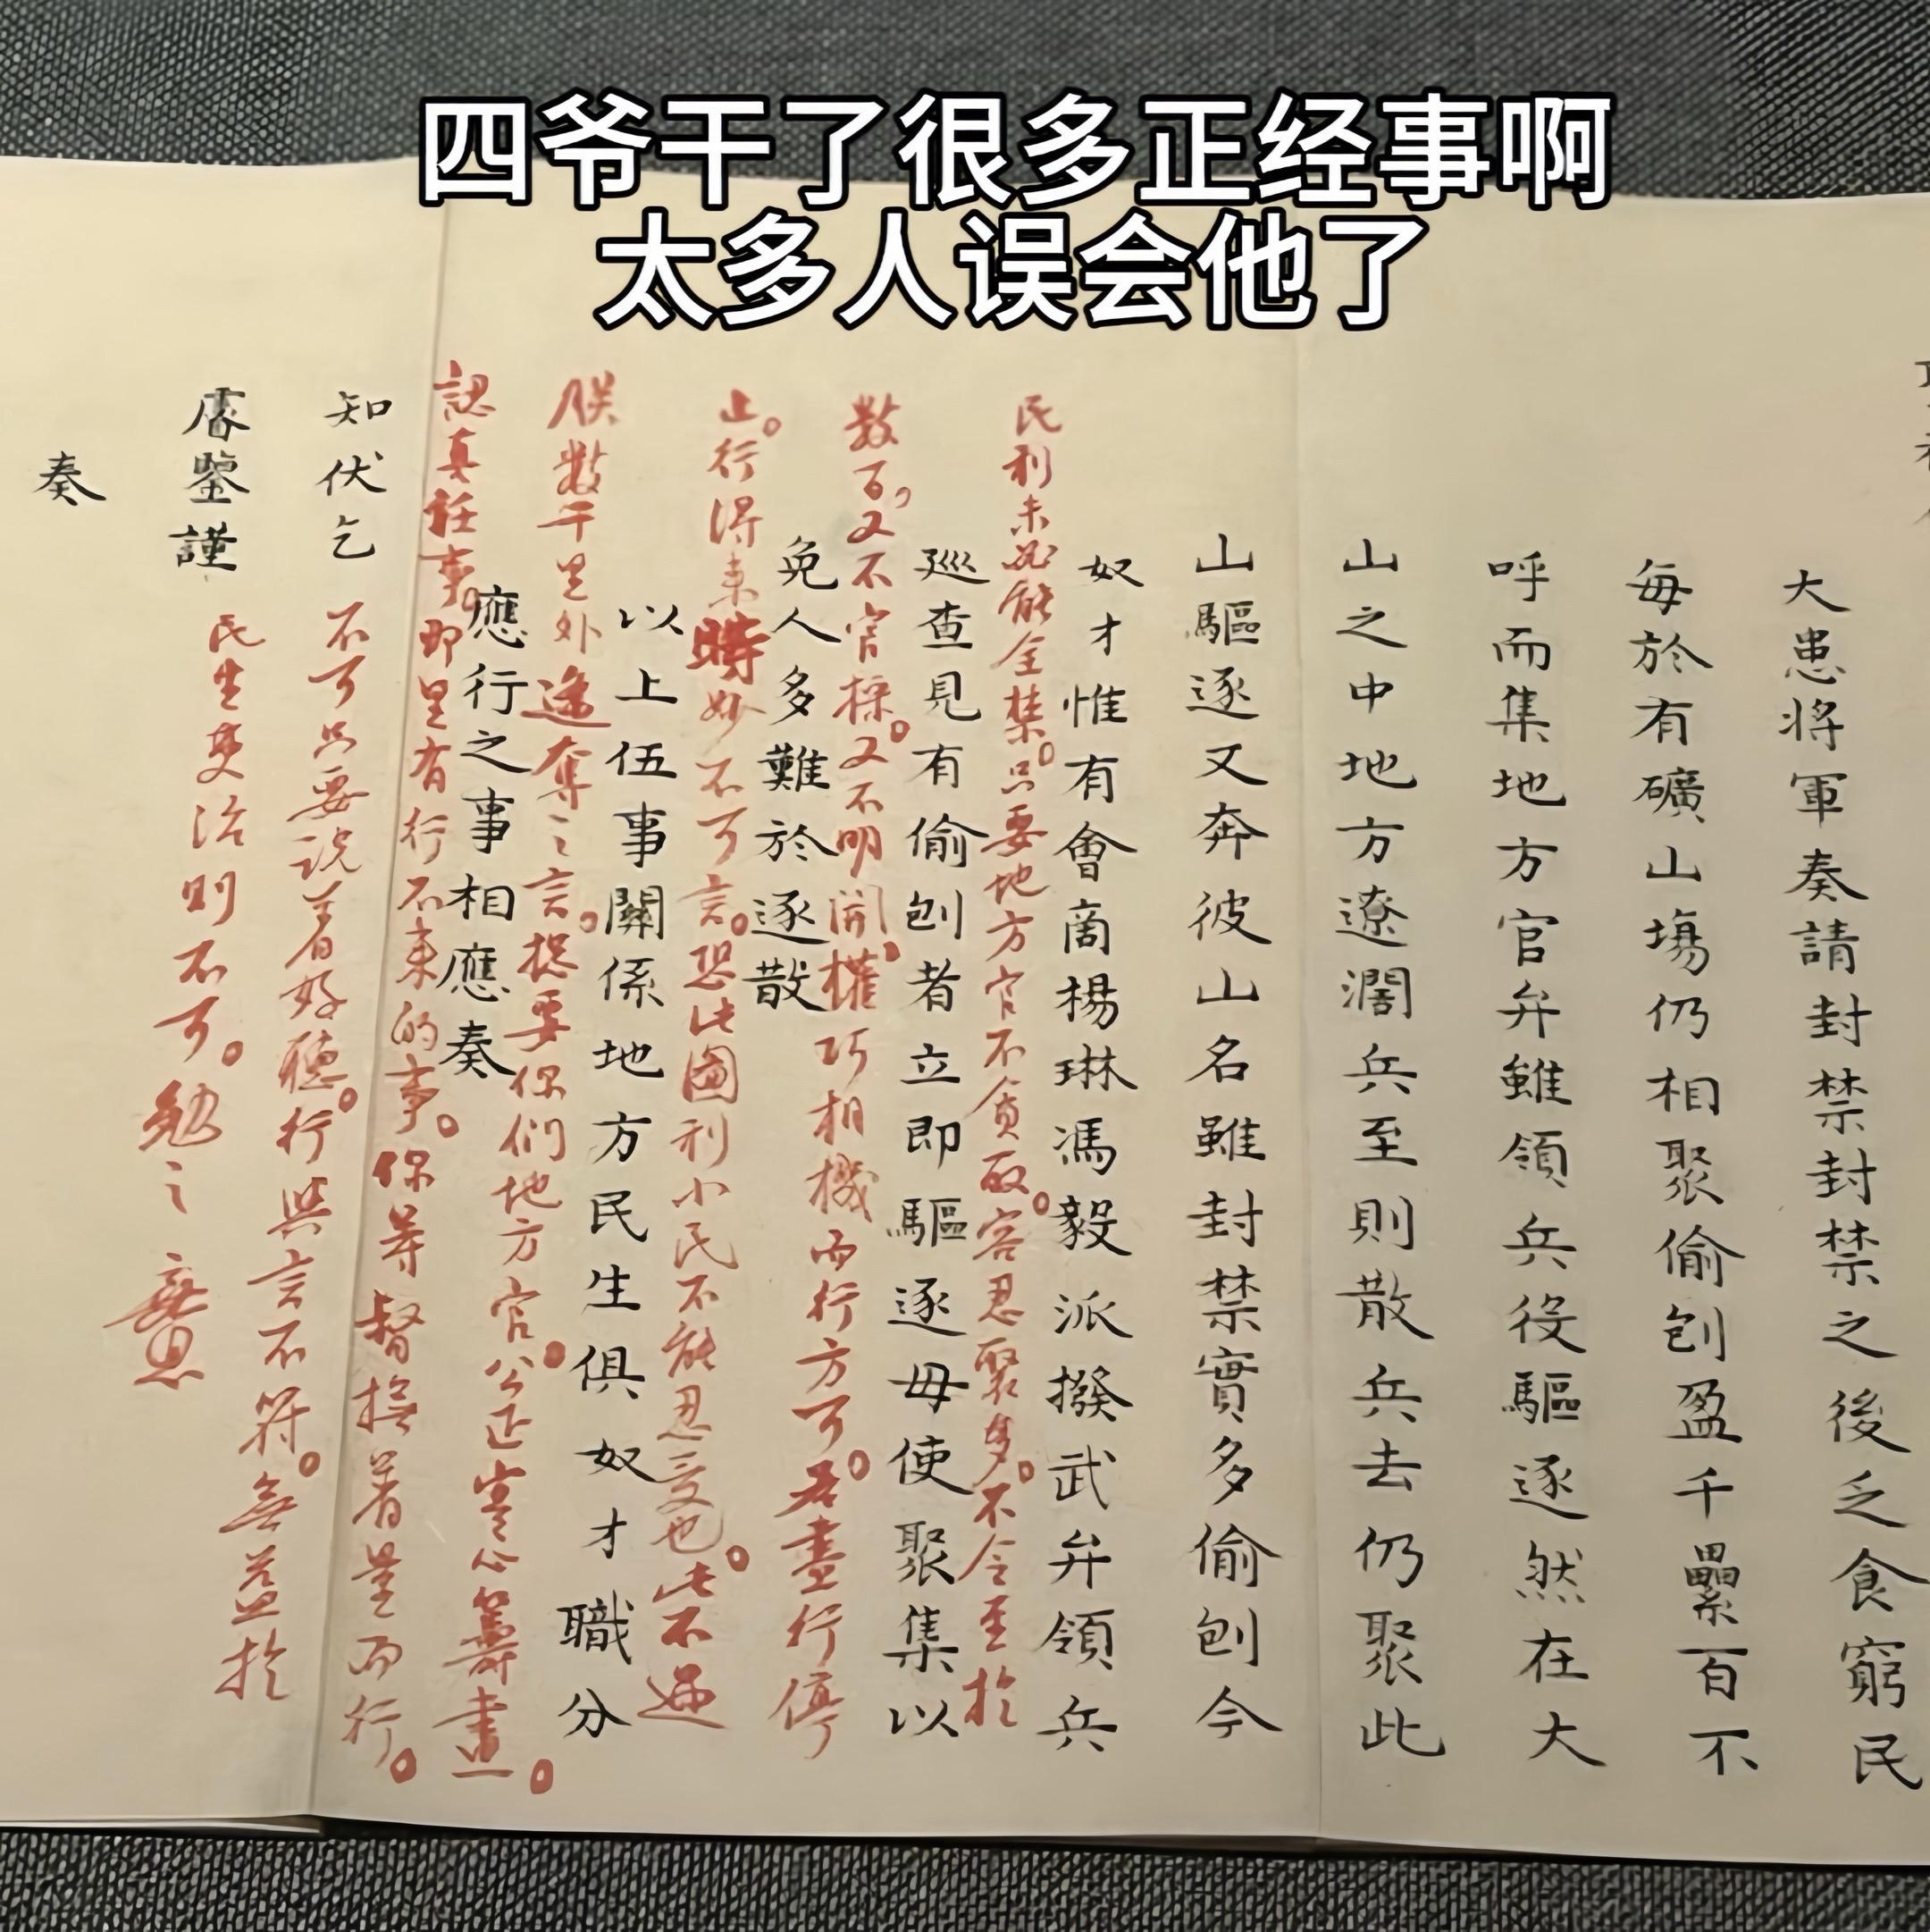 四爷干了很多正经事啊
太多人误会他了
大患將軍奏請封禁封禁之後乏食窮民
每於有礦山塲仍相聚偷刨盈千累百不
呼而集地方官弁雖領兵役驅逐然在大
山之中地方遼濶兵至則散兵去仍聚此
山驅逐又奔彼山名雖封禁實多偷刨今
奴才惟有會商楊琳馮毅派撥武弁領兵
民利未必能全禁。只要地方官不貪取。容忍聚多。不令至於
巡查見有偷刨者立即驅逐毋使聚集以
數百，又不官採。又不明開，權巧相機而行方可。若盡行停
免人多難於逐散
止。行得來時妙不可言。恐此圖利小民不能忍受也。此不過
以上伍事關係地方民生俱奴才職分
朕數千里外遙奪之言。揔要你們地方官。公正寔心籌畫。
應行之事相應奏
認真任事。那里有行不來的事。你等督撫着量而行。
知伏乞
不可只要說着好聽。行與言不符。無益於
睿鑒謹
民生吏治則不可。勉之
奏